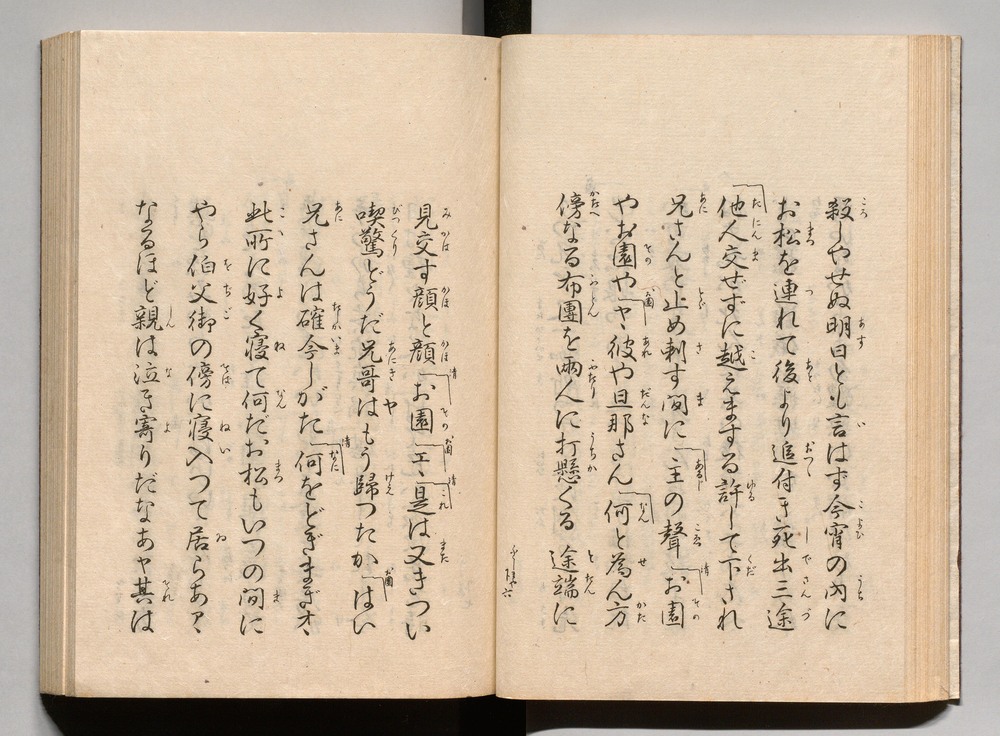 殺しやせぬ明日とも言はず今宵の内に
お松を連れて後より追付き死出三途
「他人交ぜずに越えまする許して下され
兄さんと止め刺す間に「主の聲「お園
やお園や「ヤヽ彼や旦那さん「何と為ん方
傍なる布團を兩人に打懸くる途端に
見交す顔と顔「お園「エヽ「是は又きつい
喫驚どうだ兄哥はもう歸つたか「はい
兄さんは確今しがた「何をどぎまぎオヽ
此所に好く寝て何だお松もいつの間に
やら伯父御の傍に寝入つて居らあアヽ
なるほど親は泣き寄りだなあヤ其は